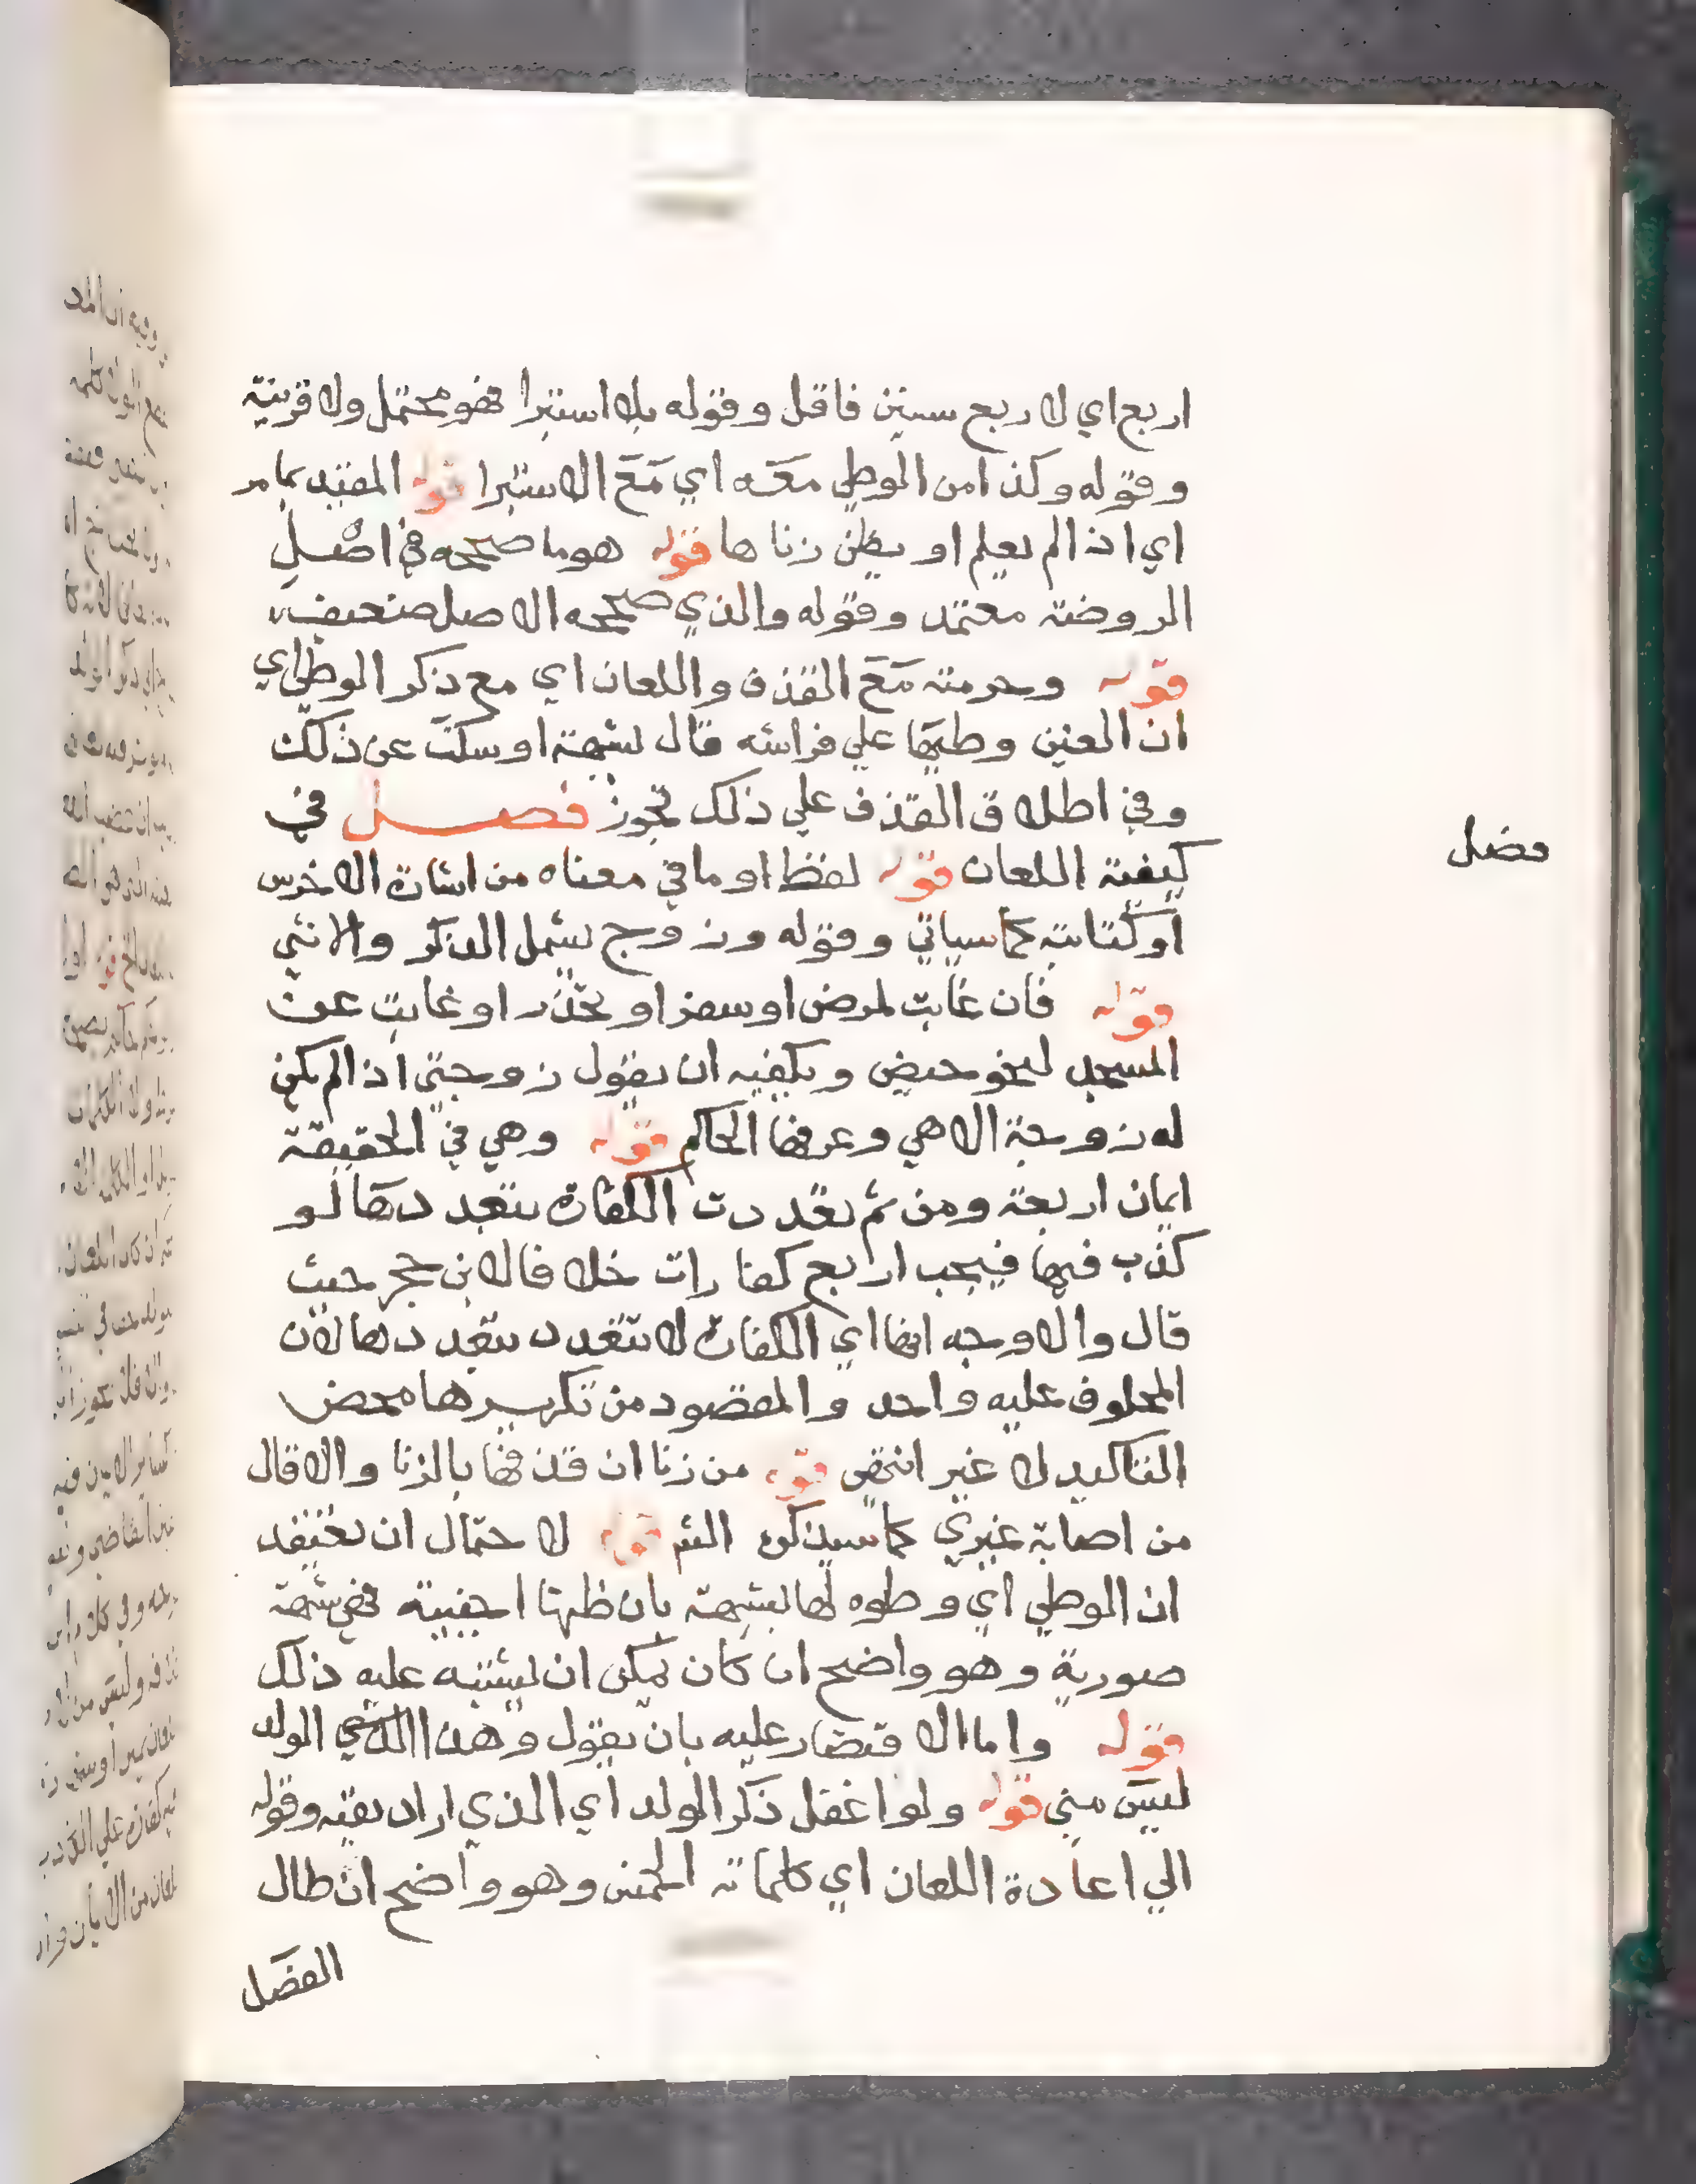 اربع اي لاربع سنين فاقل وقوله بلا استبرا فهو محتمل ولا قرينة
وقوله وكذا من الوطي معه اي مع الاستبرا قوله المقيد بما مر
اي اذا لم يعلم او يظن زناها قوله هو ما صححه في اصل
الروضة معتمد وقوله والذي صححه الاصل ضعيف
قوله وحرمته مع القذف واللعان اي مع ذكر الوطي اي
ان العنين وطيها علي فراشه قال لشبهة او سكت عن ذلك
وفي اطلاق القذف علي ذلك تجوز فصل في
فصل
كيفية اللعان قوله لفظا او ما في معناه من اشارة الاخرس
او كتابته كما سياتي وقوله وزوج يشمل الذكر والانثي
قوله فان غابت لمرض او سفر او تحذر او غابت عن
المسجد لنحو حيض ويكفيه ان يقول زوجتي اذا لم يكن
له زوجة الا هي وعرفها الحاكم قوله وهي في الحقيقة
ايمان اربعة ومن ثم تعددت الكفارة بتعددها لو
كذب فيها فيجب اربع كفارات خلافا لابن حجر حيث
قال والاوجه انها اي الكفارة لا تتعدد بتعددها لان
المحلوف عليه واحد والمقصود من تكريرها محض
التاكيد لا غير انتهى قوله من زنا ان قذفها بالزنا والا قال
من اصابة غيري كما سيذكره الشم قوله لاحتمال ان يعتقد
ان الوطي اي وطوه لها بشبهة بان ظنها اجنبية فهي شبهة
صورية وهو واضح ان كان يمكن ان يشتبه عليه ذلك
قوله واما الاقتصار عليه بان يقول وهذا الولد
ليس مني قوله ولو اغفل ذكر الولد اي الذي اراد نفيه وقوله
الي اعادة اللعان اي كلماته الخمس وهو واضح ان طال
الفصل